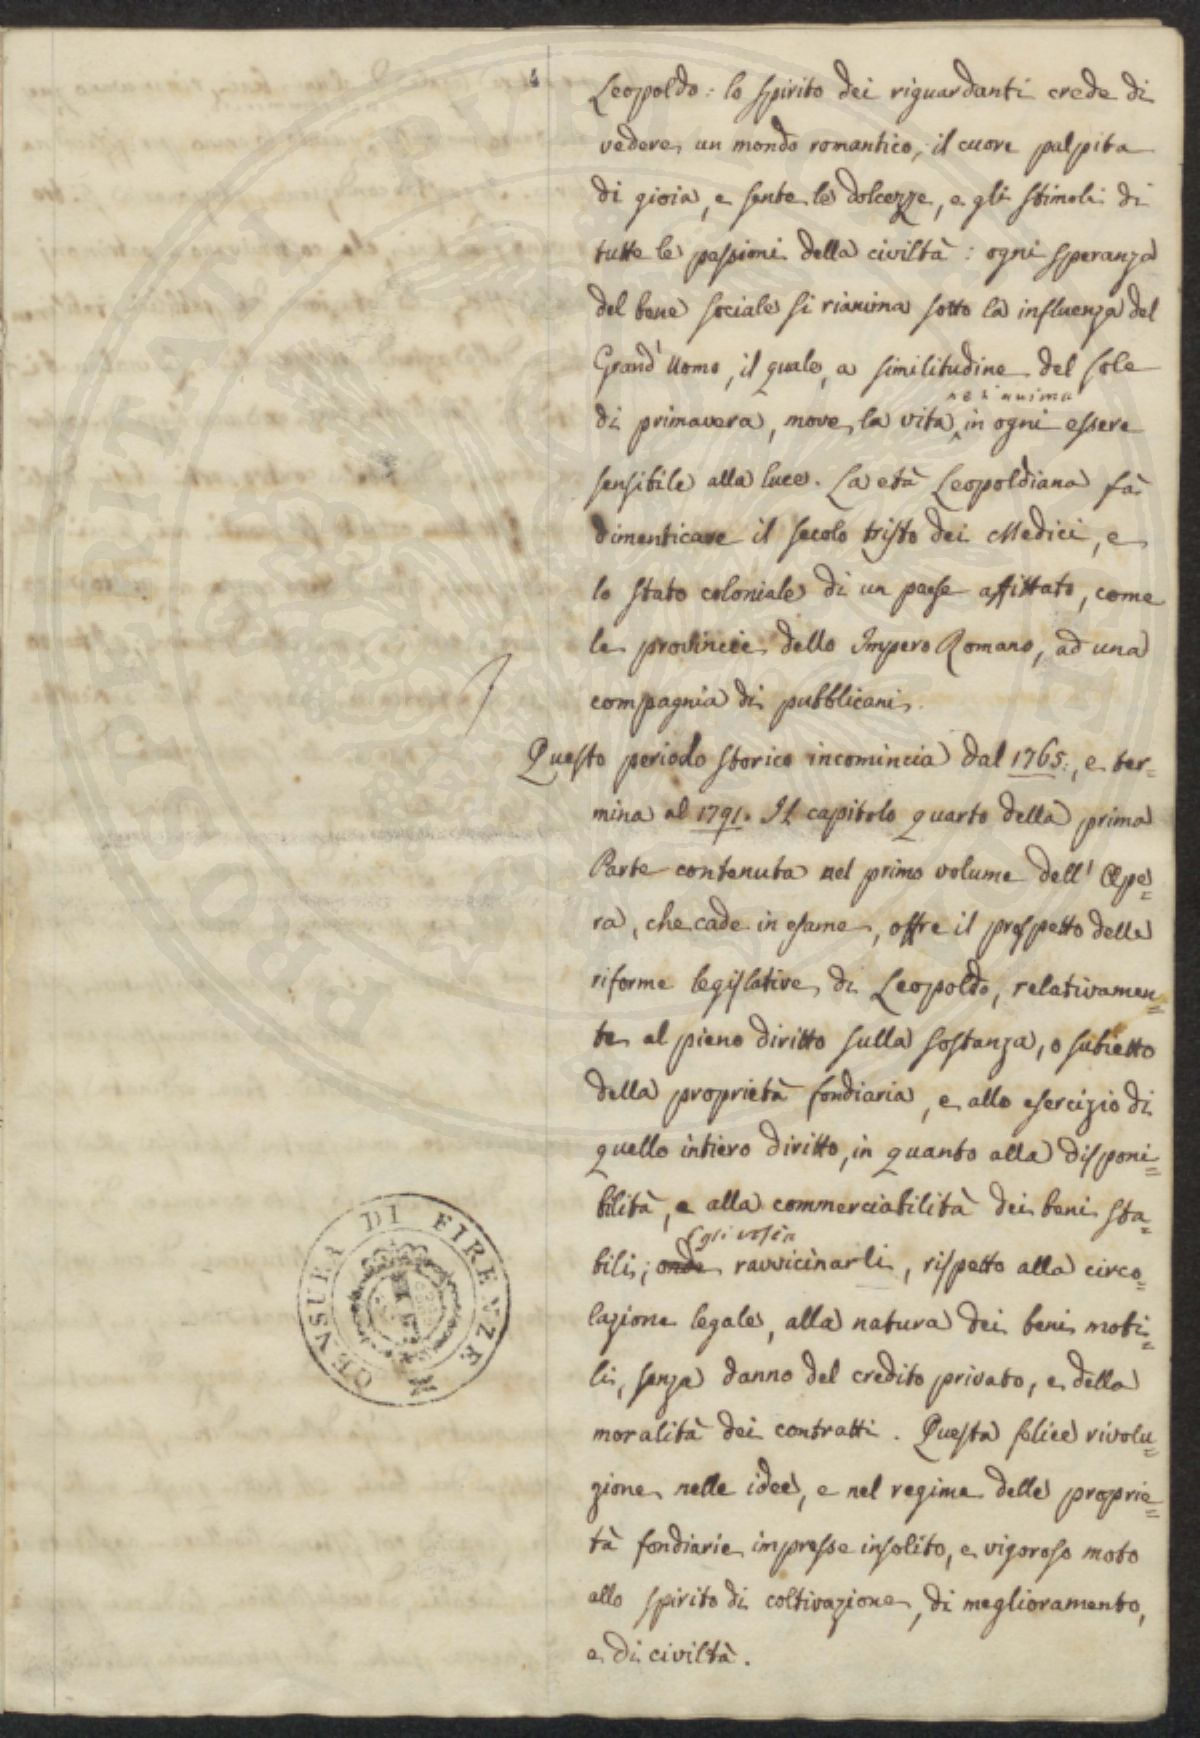 Leopoldo: lo spirito dei riguardanti crede di
vedere un mondo romantico, il cuore palpita
di gioia, e sente le dolcezze, e gli stimoli di
tutte le passioni della civiltà: ogni speranza
del bene sociale si rianima sotto la influenza del
Grand'Uomo, il quale, a similitudine del sole
rerinnima
di primavera, move la vita ^ in ogni essere
sensibile alla luce. La età Leopoldiana fà
dimenticare il secolo tristo dei Medici, e
lo stato coloniale di un paese affittato, come
le provincie dello Impero Romano, ad una
compagnia di pubblicani.
Questo periodo storico incomincia dal 1765:, e ter=
mina al 1791. Il capitolo quarto della prima
Parte contenuta nel primo volume dell' Ope=
ra, che cade in esame, offre il prospetto delle
riforme legislative di Leopoldo, relativamen=
te al pieno diritto sulla sostanza, o subietto
della proprietà fondiaria, e allo esercizio di
quello intiero diritto, in quanto alla disponi=
bilità, e alla commerciabilità dei beni sta=
Egli volea
bili; onde ravvicinarli, rispetto alla circo=
lazione legale, alla natura dei beni mobi=
li, senza danno del credito privato, e della
moralità dei contratti. Questa felice rivolu=
zione nelle idee, e nel regime delle proprie=
tà fondiarie impresse insolito, e vigoroso moto
allo spirito di coltivazione, di miglioramento,
e di civiltà.
CENSURA DI FIRENZE
PROSPERITATI PVBLICAE